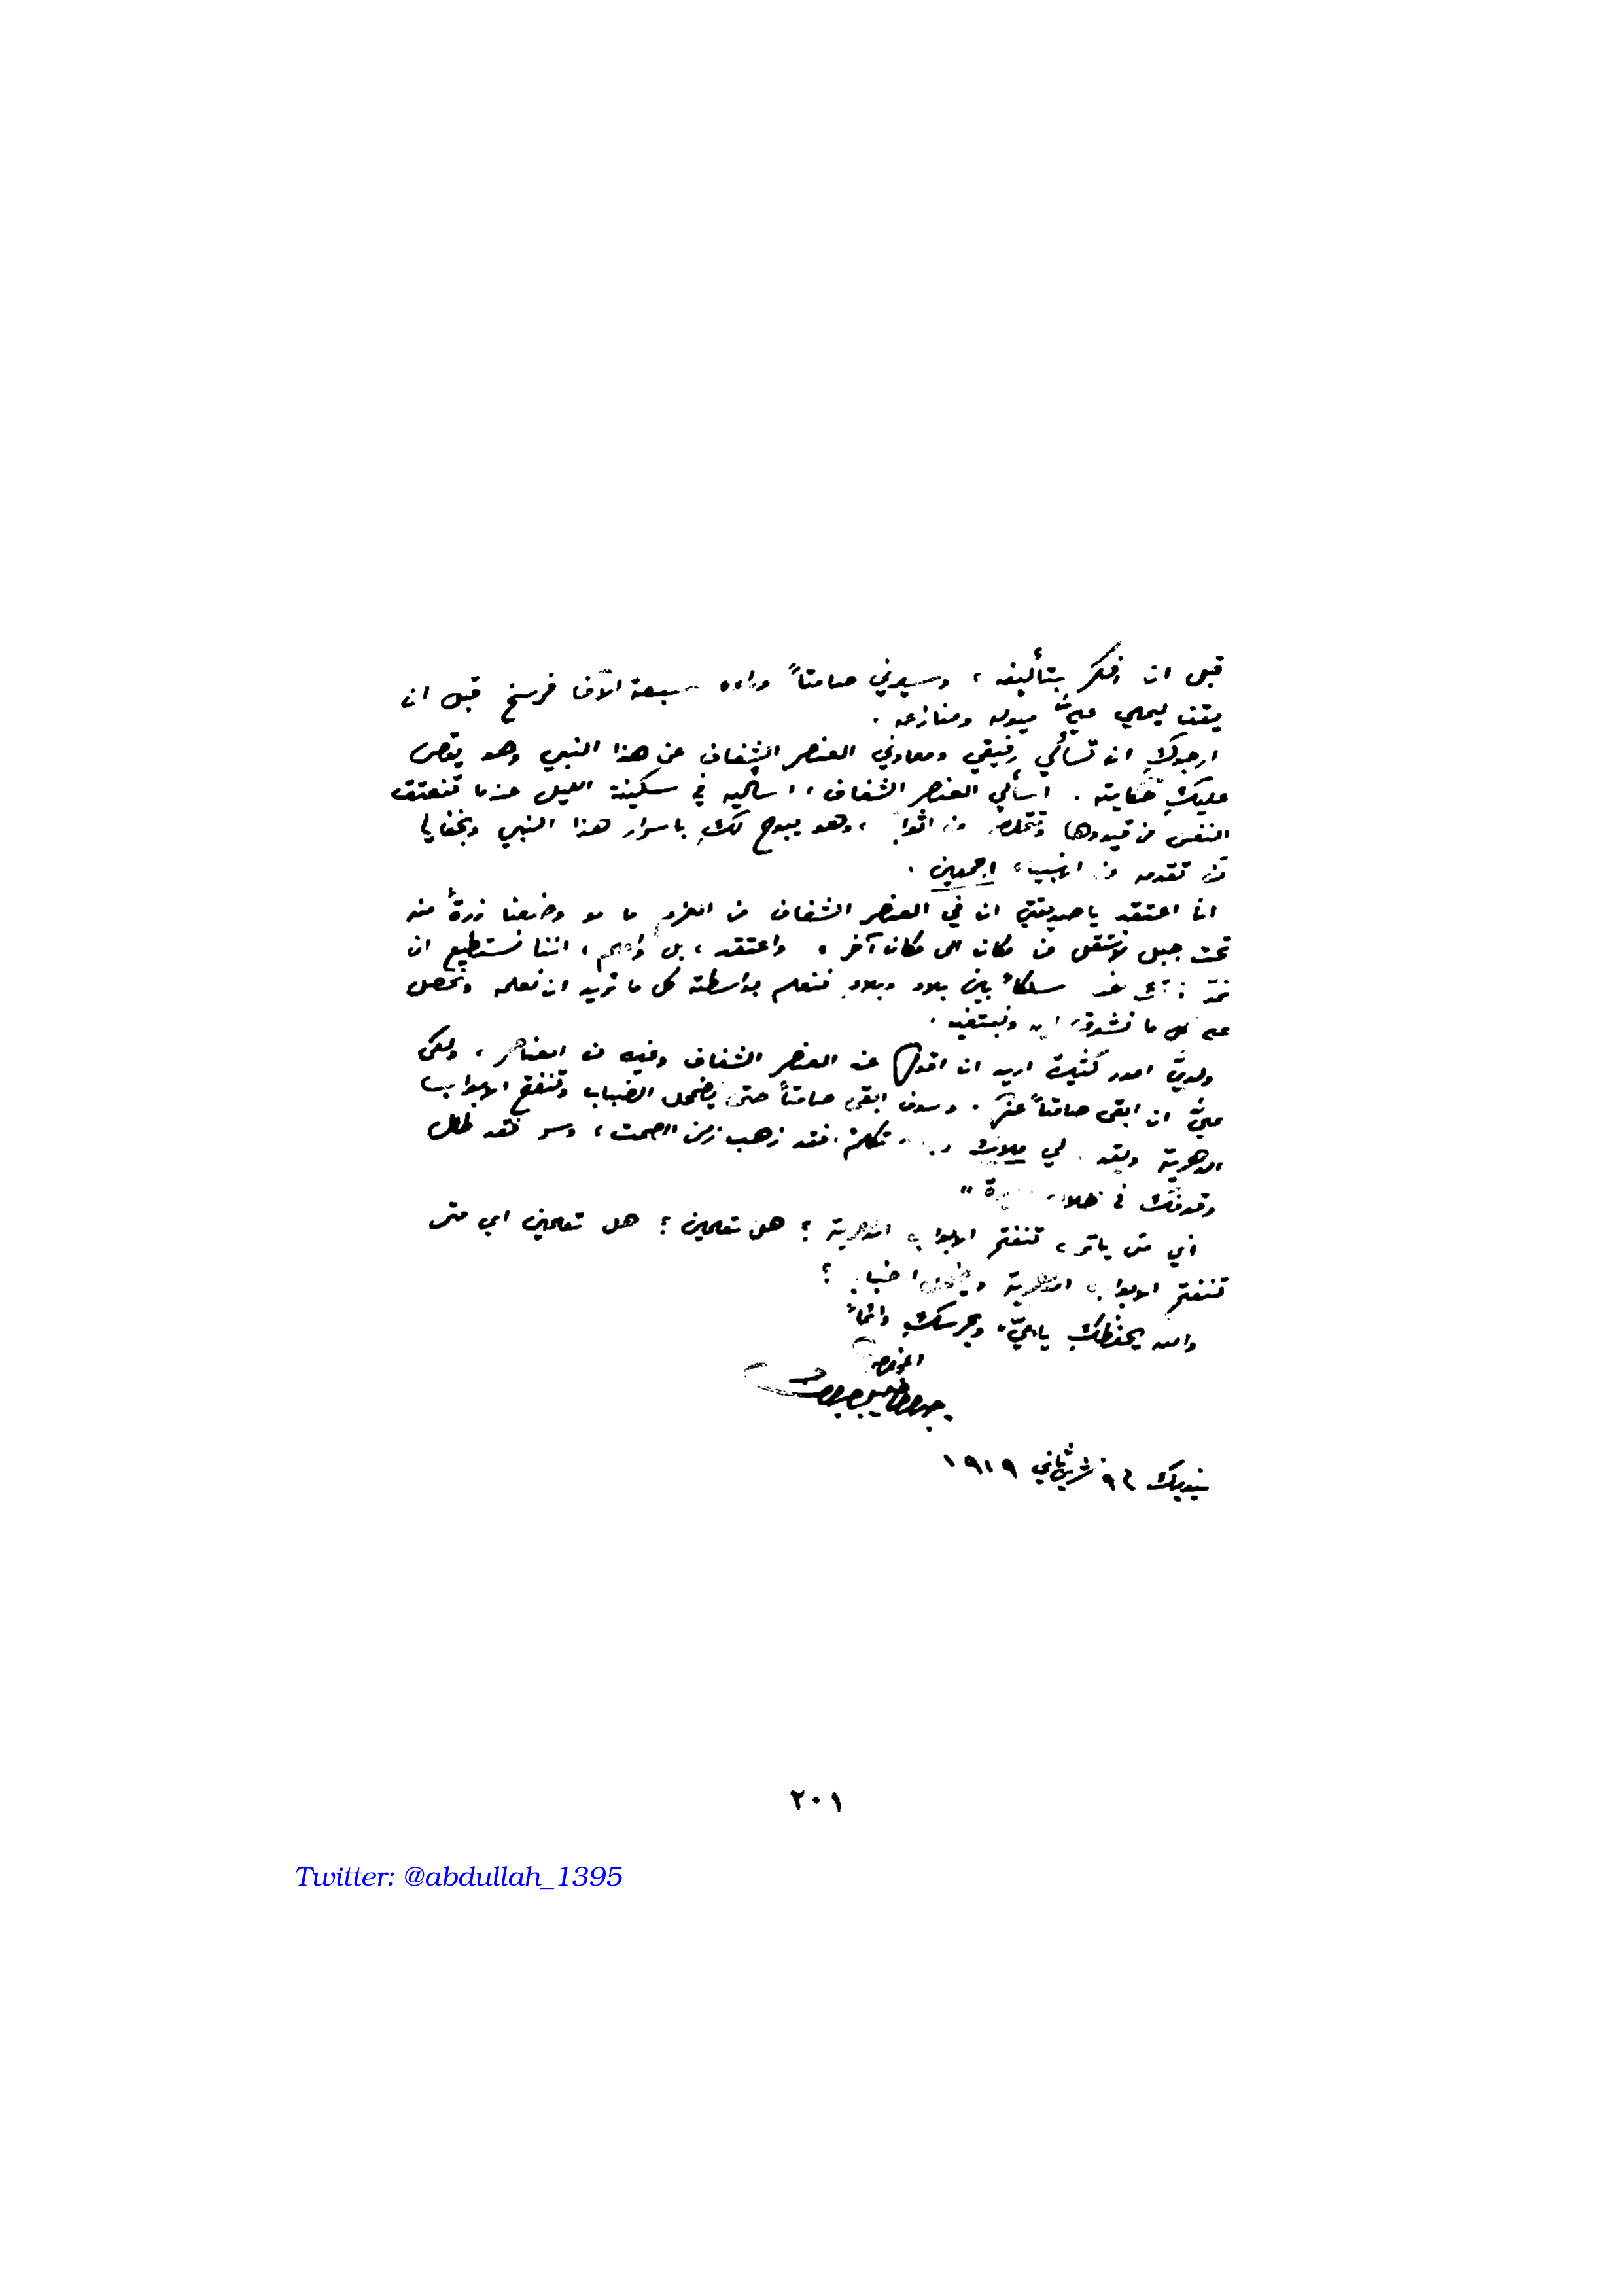 قبل ان افكر بتأليفه ، وسيرني صامتاً وراءه سبعة آلاف فرسخ قبل ان
يقف ليملي عليَّ ميوله ومنازعه .
ارجوكِ ان تسألي رفيقي ومعاوني العنصر الشفاف عن هذا النبي وهو يقص
عليكِ حكايته . اسألي العنصر الشفاف ، اسأليه في سكينة الليل عندما تنعتق
النفس من قيودها وتتملص من اثوابها ، وهو يبوح لكِ باسرار هذا النبي وبخفايا
من تقدمه من الانبياء اجمعين .
انا اعتقد يا صديقتي ان في العنصر الشفاف من العزم ما لو وضعنا ذرةً منه
تحت جبل لانتقل من مكان الى مكان آخر ، واعتقد ، بل واعلم ، اننا نستطيع ان
نمدّ سلكاً بين بلاد وبلاد فنعلم بواسطته كل ما نريد ان نعلمه ونحصل
على كل ما نشوق اليه ونبتغيه .
ولديَّ امور كثيرة اريد ان اقولها عن العنصر الشفاف وغيره من العناصر ، ولكن
عليَّ ان ابقى صامتاً عنها . وسوف ابقى صامتاً حتى يضمحل الضباب وتنفتح الابواب
الدهرية ويقول لي ملاك تكلم فقد ذهب زمن الصمت ، وسر فقد طال
وقوفك في ظلال "
اي متى يا ترى تنفتح الابواب الدهرية ؟ هل تعلمين ؟ هل تعلمين اي متى
تنفتح الابواب الدهرية ويضمحل الضباب ؟
والله يحفظكِ يا ميّ ويحرسكِ دائماً
المخلص
جبران خليل جبران
نيويورك ٩ تشرين ثاني ١٩١٩
٢٠١
Twitter: @abdullah_1395